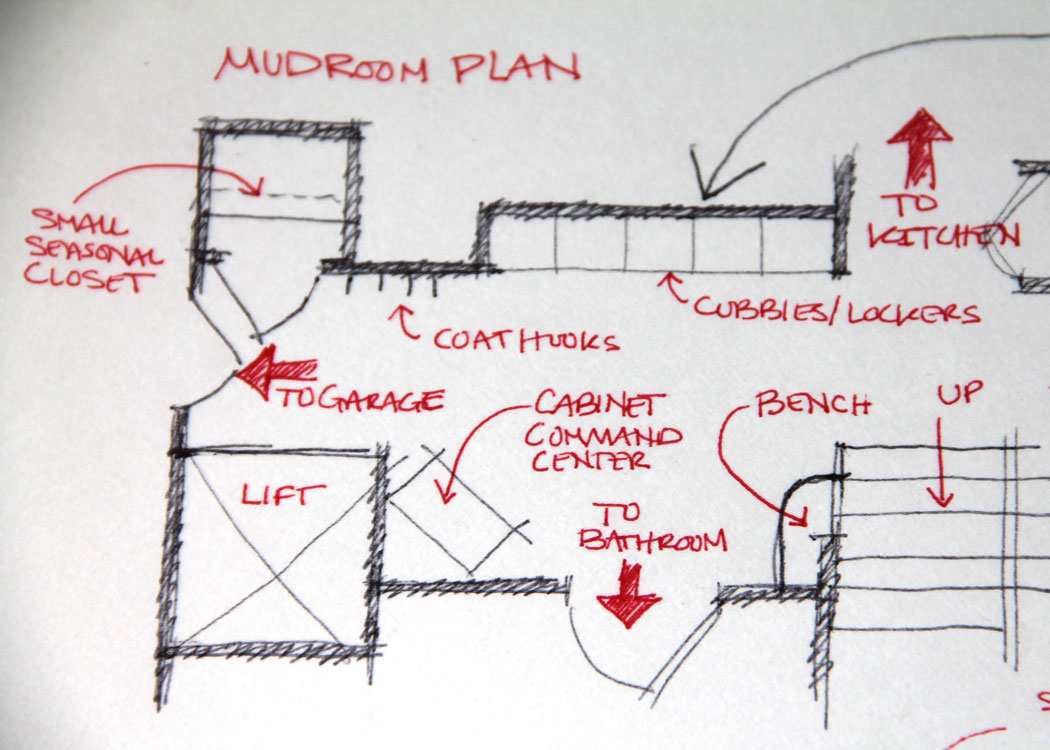 MUDROOM PLAN
TO
KITCHEN
SMALL
SEASONAL
CLOSET
CUBBIES/LOCKERS
COAT HOOKS
TO GARAGE
CABINET
COMMAND
CENTER
BENCH
UP
LIFT
TO
BATHROOM
S